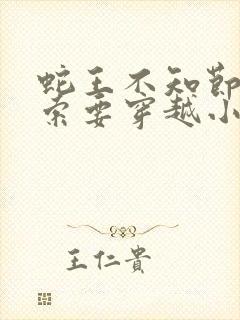 蛇王不知節
索要穿越小
王仁貴